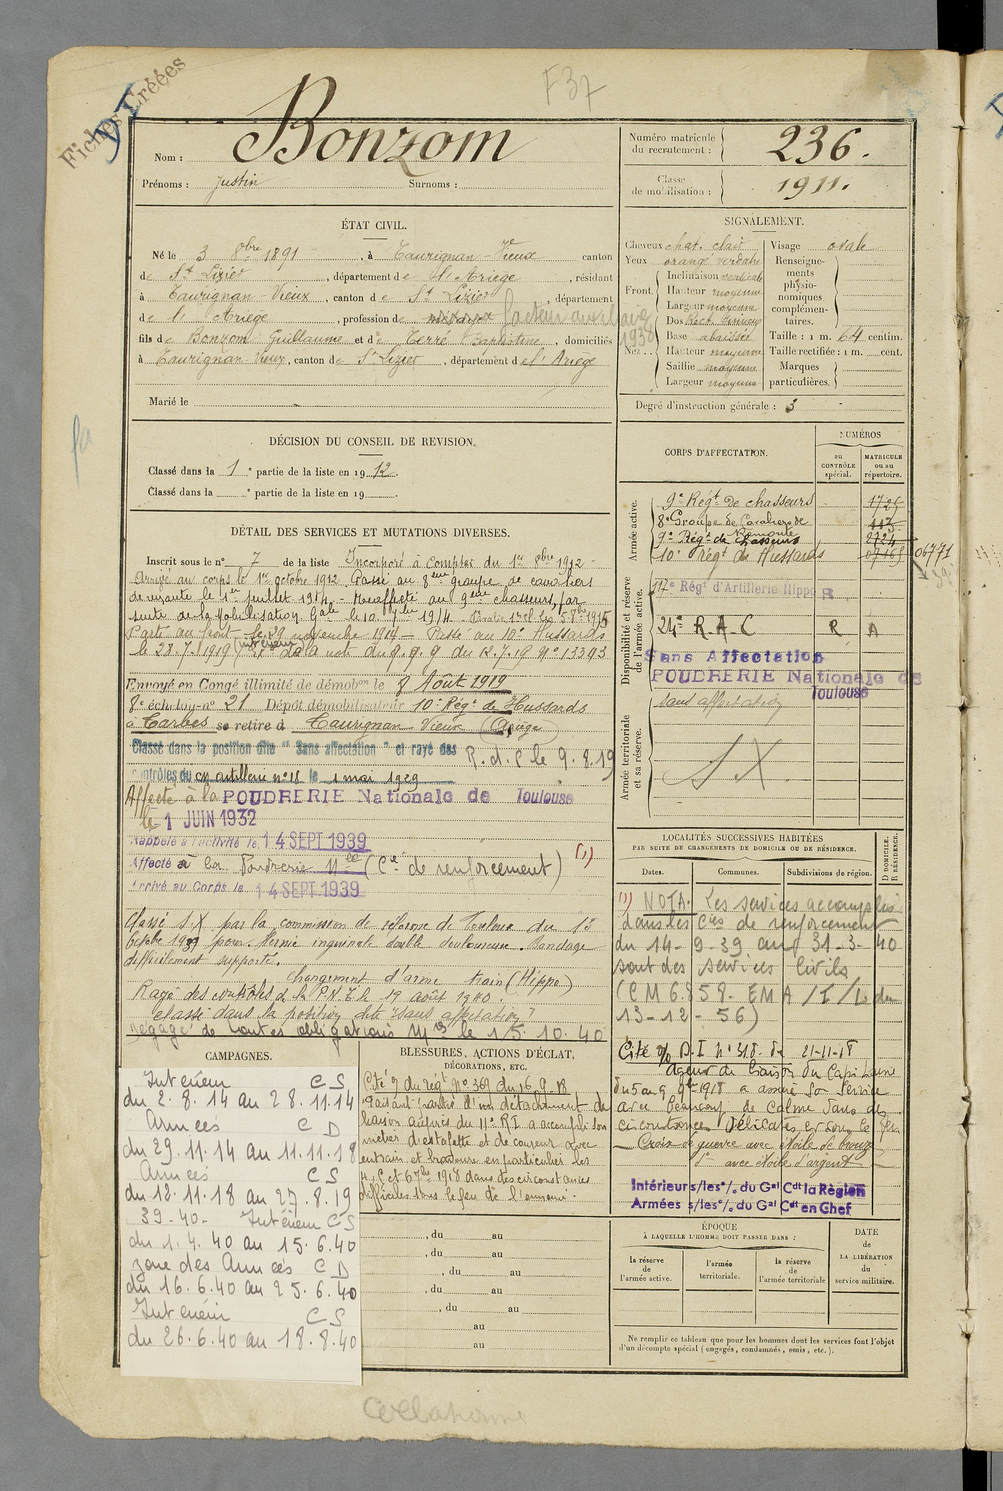 F37
Fiches Créées
Nom : Bonzom
Prénoms : Justin Surnoms :
Numéro matricule du recrutement : 236.
Classe de mobilisation : 1911.
ÉTAT CIVIL.
Né le 3 8bre 1891, à Taurignan-Vieux canton
de St Lizier, département de l'Ariège, résidant
à Taurignan-Vieux, canton de St Lizier, département
de l'Ariège, profession de facteur auxiliaire
1938
fils de Bonzom Guillaume et de Terré Baptistine, domiciliés
à Taurignan Vieux, canton de St Lizier, département de l'Ariège
Marié le
SIGNALEMENT.
Cheveux chat. clair
Yeux orangé verdatre
Front. Inclinaison verticale
Hauteur moyenne
Largeur moyenne
Nez. Dos Rect. sinueux
Base abaissée
Hauteur moyenne
Saillie moyenne
Largeur moyenne
Visage ovale
Renseignements physionomiques complémentaires.
Taille : 1 m. 64 centim.
Taille rectifiée : 1 m. cent.
Marques particulières.
Degré d'instruction générale : 3
DÉCISION DU CONSEIL DE REVISION.
Classé dans la 1e partie de la liste en 1912.
Classé dans la e partie de la liste en 19
DÉTAIL DES SERVICES ET MUTATIONS DIVERSES.
Inscrit sous le n° 7 de la liste Incorporé à compter du 1er 8bre 1912
Arrivé au corps le 1er octobre 1912. Passé au 8ème groupe de cavaliers
de remonte le 1er juillet 1914. Réaffecté au 9ème chasseurs, par
suite de la Mobilisation Gale le 10 7bre 1914.
Parti au front le 29 novembre 1914 - Passé au 10e Hussards
le 28.7.1919 (intérieur) de la note du G.Q.G du 12.7.19 N° 13393
Envoyé en Congé illimité de démobon le 8 Août 1919
8e échelon n° 21 Dépôt démobilisateur 10e Régt de Hussards
à Tarbes se retire à Taurignan Vieux (Ariège)
R.d.P le 9.8.19
Classé dans la position dite "Sans affectation" et rayé des
contrôles du CM artillerie n° 18 le 1 mai 1929
Affecté à la POUDRERIE Nationale de Toulouse
le 1 JUIN 1932
Rappelé à l'activité le 14 SEPT 1939
Affecté à la Poudrerie Nle (Cie de renforcement) (1)
Arrivé au Corps le 14 SEPT 1939
Classé S.X par la commission de réforme de Toulouse du 13
Octobre 1939 pour: Hernie inguinale double douloureuse. Bandage
difficilement supporté.
Changement d'arme train (Hippo)
Rayé des contrôles de la P.N.T. le 19 août 1940.
Classé dans la position dite "sans affectation"
Dégagé de toutes obligations Mres le 15.10.40
CORPS D'AFFECTATION.
NUMÉROS
au CONTRÔLE spécial.
MATRICULE ou au répertoire.
Armée active.
9e Régt de chasseurs 1725
8e Groupe de Cavaliers de Remonte
9e Régt de Chasseurs
10e Régt de Hussards 06771
Disponibilité et réserve de l'armée active.
117e Régt d'Artillerie Hippo R
24e R.A.C R A
Sans Affectation
POUDRERIE Nationale de
Toulouse
Armée territoriale et sa réserve.
sans affectation
S X
LOCALITÉS SUCCESSIVES HABITÉES
PAR SUITE DE CHANGEMENTS DE DOMICILE OU DE RÉSIDENCE.
Dates. Communes. Subdivisions de région. D DOMICILE. R RÉSIDENCE.
(1) NOTA. Les services accomplis
dans les Cies de renforcement
du 14-9-39 au 31-3-40
sont des services Civils
(CM 6.858-EMA/I/L du
13-12-56)
Cité o/o D.I n° 318. du 21-11-18
agent de liaison du Capitaine
du 5 au 9 9bre 1918 a assuré son service
avec beaucoup de calme dans des
circonstances délicates et sous le feu
Croix de guerre avec étoile de bronze
d° avec étoile d'argent
Intérieur s/les°/. du Gal Cdt la Région
Armées s/les°/. du Gal Cdt en Chef
CAMPAGNES.
Intérieur CS
du 2.8.14 au 28.11.14
Armées CD
du 29.11.14 au 11.11.18
Armées CS
du 12.11.18 au 27.8.19
39-40- Intérieur CS
du 1.4.40 au 15.6.40
zone des Armées CD
du 16.6.40 au 25.6.40
Intérieur CS
du 26.6.40 au 18.8.40
BLESSURES, ACTIONS D'ÉCLAT,
DÉCORATIONS, ETC.
Cité o/ du régt N° 369 du 16.9.18
Faisant partie d'un détachement de
liaison auprès du 11e R.I a accompli son
métier d'estafette et de coureur avec
entrain et bravoure en particulier les
4, 5 et 6 7bre 1918 dans des circonstances
difficiles sous le feu de l'ennemi.
, du au
, du au
, du au
, du au
, du au
au
au
ÉPOQUE
À LAQUELLE L'HOMME DOIT PASSER DANS :
la réserve de l'armée active.
l'armée territoriale.
la réserve de l'armée territoriale
DATE de LA LIBÉRATION du service militaire.
Ne remplir ce tableau que pour les hommes dont les services font l'objet
d'un décompte spécial (engagés, condamnés, omis, etc.).